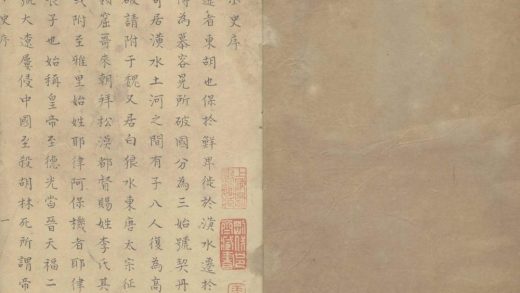 小史序
遼者東胡也保於鮮卑徙於潢水遷於
為慕容晃所破國分為三始號契丹
居潢水土河之間有子八人復為高
破請附于魏又居白狼水東唐太宗征
窟哥來朝拜松漠都督賜姓李氏其
附至雅里始姓耶律阿保機者耶律
子也始稱皇帝至德光當晉天福二
號大遼屢侵中國至殺胡林死所謂帝
史序 一
藏書